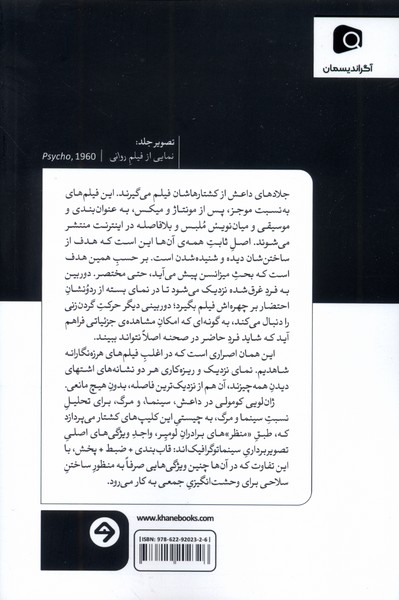 آگراندیسمان
تصویر جلد:
نمایی از فیلم روانی | Psycho, 1960
جلادهای داعش از کشتارهاشان فیلم می‌گیرند. این فیلم‌های
به‌نسبت موجز، پس از مونتاژ و میکس، به عنوان‌بندی و
موسیقی و میان‌نویش مُلبس و بلافاصله در اینترنت منتشر
می‌شوند. اصل ثابتِ همه‌ی آن‌ها این است که هدف از
ساختن‌شان دیده و شنیده‌شدن است. بر حسبِ همین هدف
است که بحثِ میزانسن پیش می‌آید، حتی مختصر. دوربین
به فردِ غرق‌شده نزدیک می‌شود تا در نمای بسته از ردّونشانِ
احتضار بر چهره‌اش فیلم بگیرد؛ دوربینی دیگر حرکتِ گردن‌زنی
را دنبال می‌کند، به گونه‌ای که امکانِ مشاهده‌ی جزئیاتی فراهم
آید که شاید فردِ حاضر در صحنه اصلاً نتواند ببیند.
این همان اصراری است که در اغلبِ فیلم‌های هرزه‌نگارانه
شاهدیم. نمای نزدیک و ریزه‌کاری هر دو نشانه‌های اشتهای
دیدنِ همه‌چیزند، آن هم از نزدیک‌ترین فاصله، بدونِ هیچ مانعی.
ژان‌لویی کومولی در داعش، سینما، و مرگ، برای تحلیلِ
نسبتِ سینما و مرگ، به چیستیِ این کلیپ‌های کشتار می‌پردازد
که، طبقِ «منظر»های برادرانِ لومیر، واجدِ ویژگی‌های اصلیِ
تصویربرداریِ سینماتوگرافیک‌اند: قاب‌بندی + ضبط + پخش، با
این تفاوت که در آن‌ها چنین ویژگی‌هایی صرفاً به منظورِ ساختنِ
سلاحی برای وحشت‌انگیزیِ جمعی به کار می‌رود.
www.khanebooks.com
ISBN: 978-622-92023-2-6